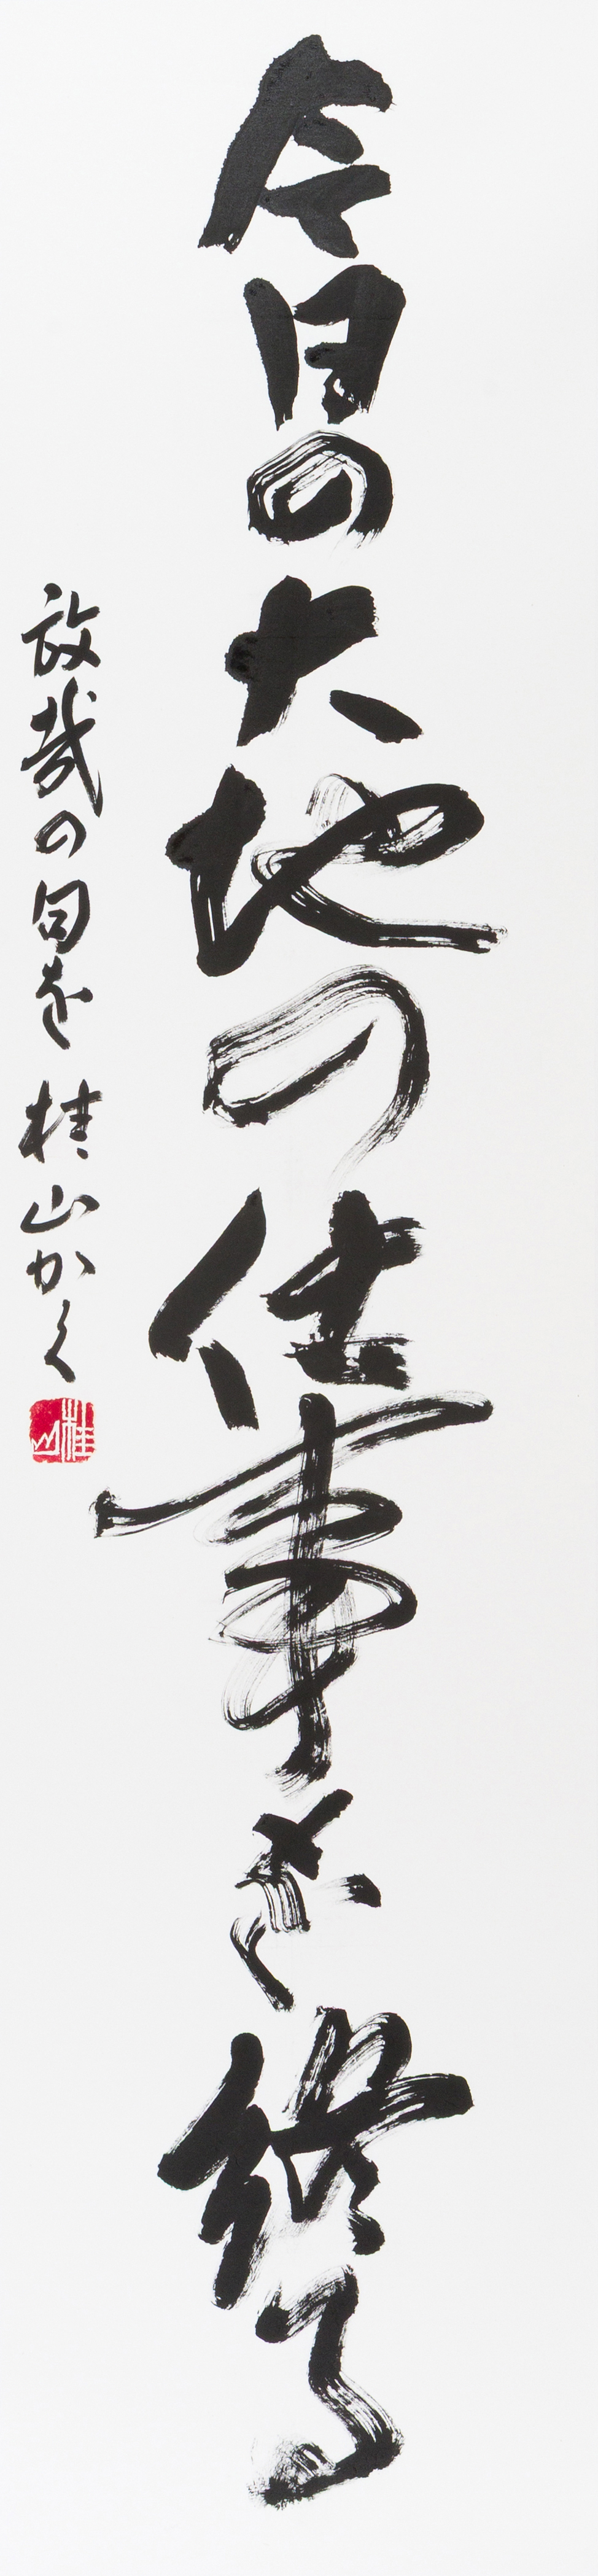 今日の大地の仕事を終る
放哉の句を 桂山かく
桂山